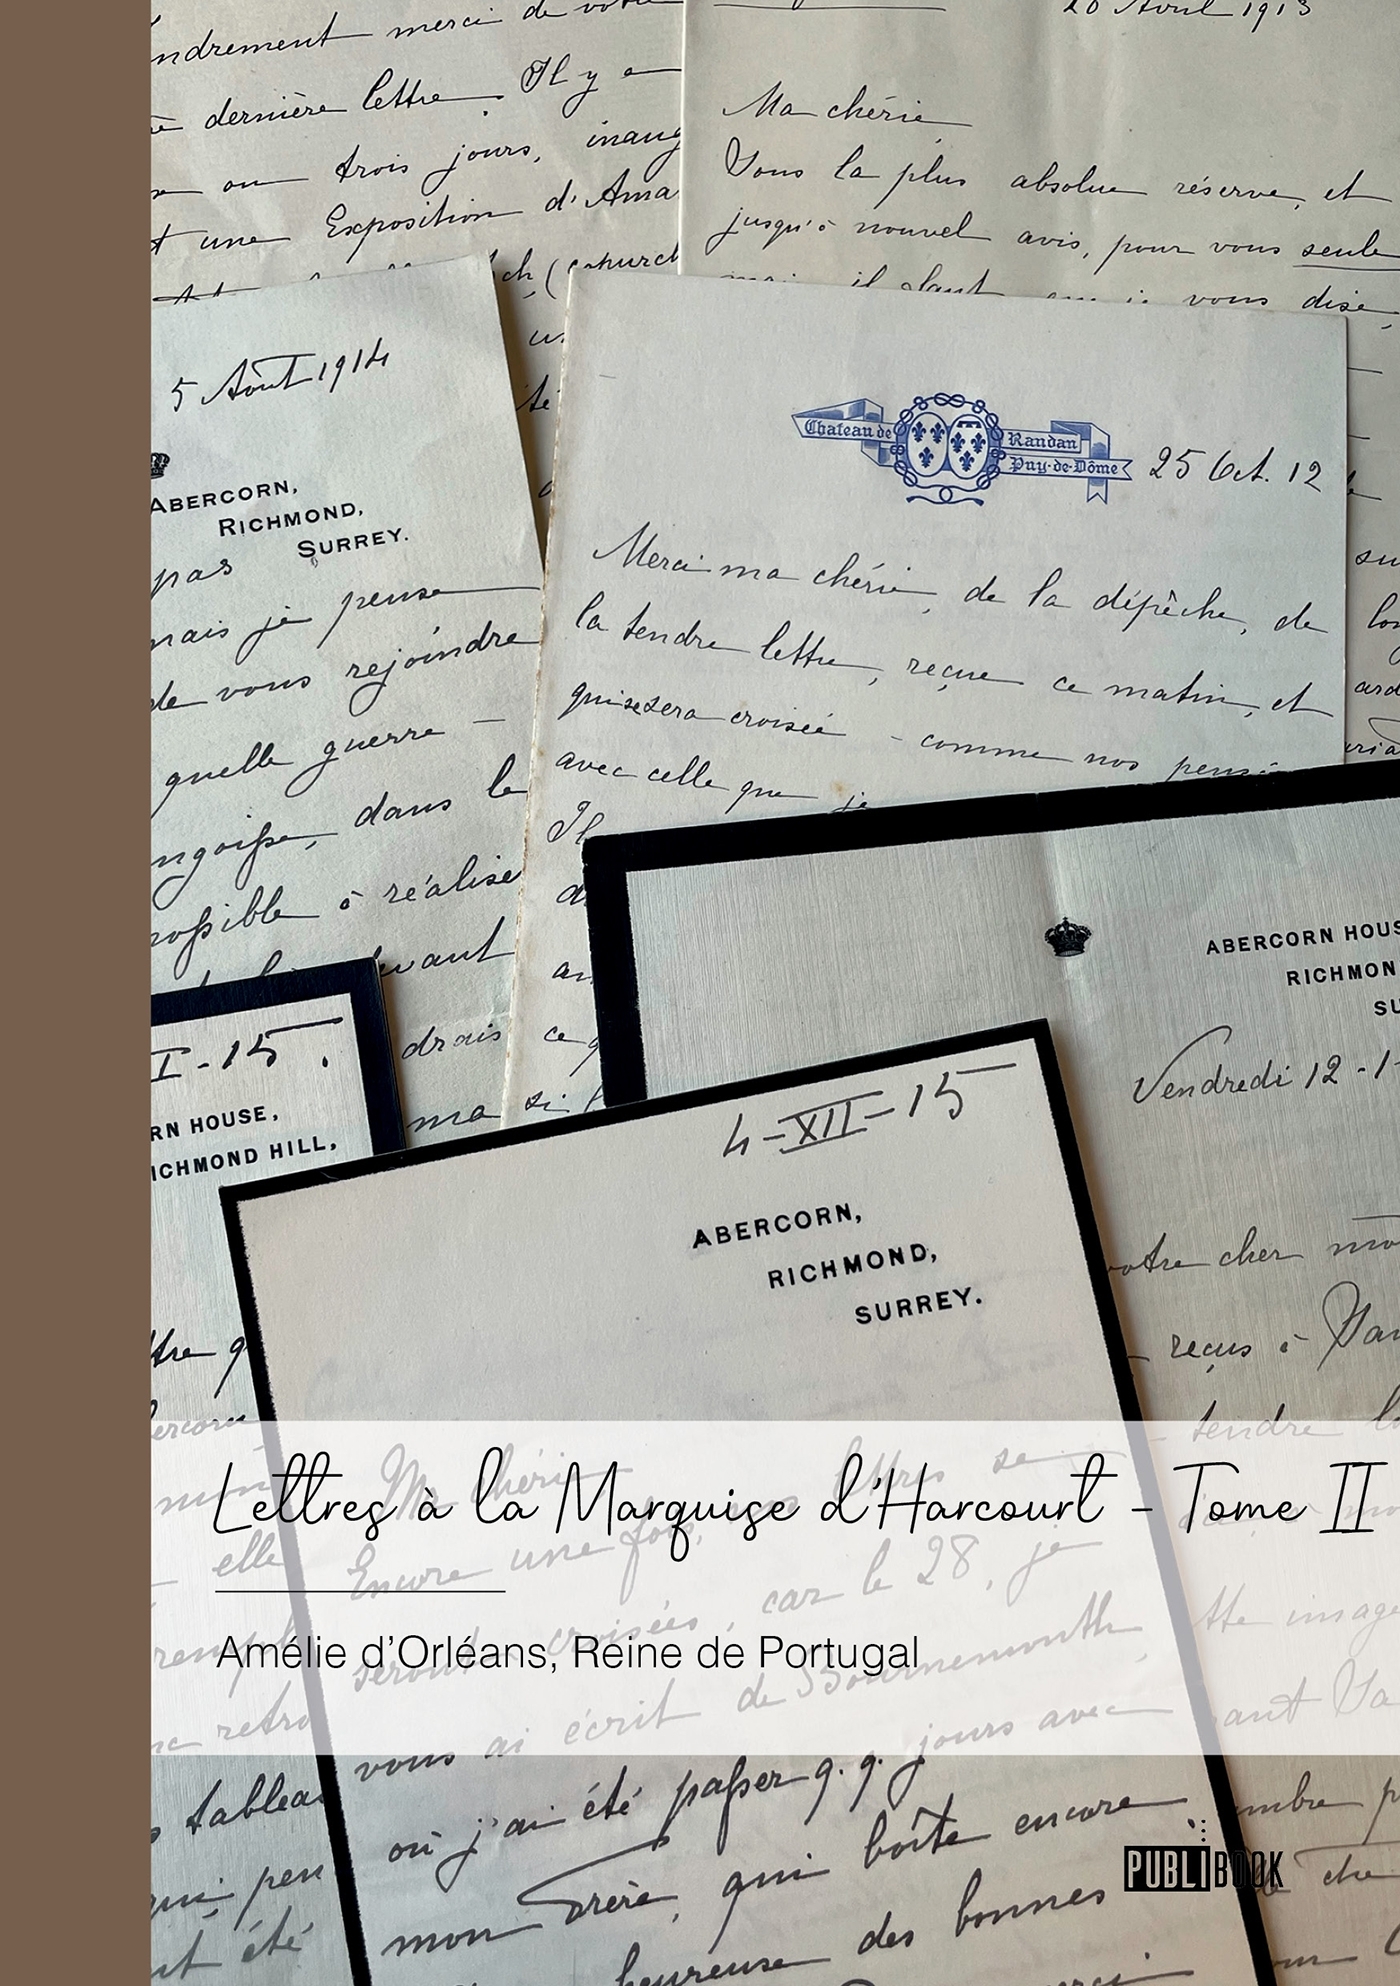 ndrement merci de votre
dernière lettre. Il y a
ou trois jours, inaug
t une Exposition d'Ama
20 Avril 1913
Ma chérie,
Sous la plus absolue réserve, et
jusqu'à nouvel avis, pour vous seule
il faut que je vous dise,
5 Août 1914
ABERCORN,
RICHMOND,
SURREY.
pas
mais je pense
de vous rejoindre
quelle guerre –
ngoisse, dans le
possible à réalise
devant
drais
ma si
Chateau de Randan
Puy-de-Dôme
25 Oct. 12
Merci ma chérie, de la dépêche, de
la tendre lettre, reçue ce matin, et
qui se sera croisée - comme nos pensé
avec celle que je
Il
ABERCORN HOUS
RICHMON
SU
Vendredi 12 - 1 -
votre cher
reçus à
tendre
I-15.
RN HOUSE,
ICHMOND HILL,
4-XII-15
ABERCORN,
RICHMOND,
SURREY.
Ma chérie
Encore une fois, nos lettres se
seront croisées, car le 28, je
vous ai écrit de Bournemouth
où j'ai été passer q.q. jours avec
mon Frère, qui boîte encore
heureuse des bonnes
elle
tableau
été
tte image
Lettres à la Marquise d'Harcourt - Tome II
Amélie d'Orléans, Reine de Portugal
PUBLIBOOK